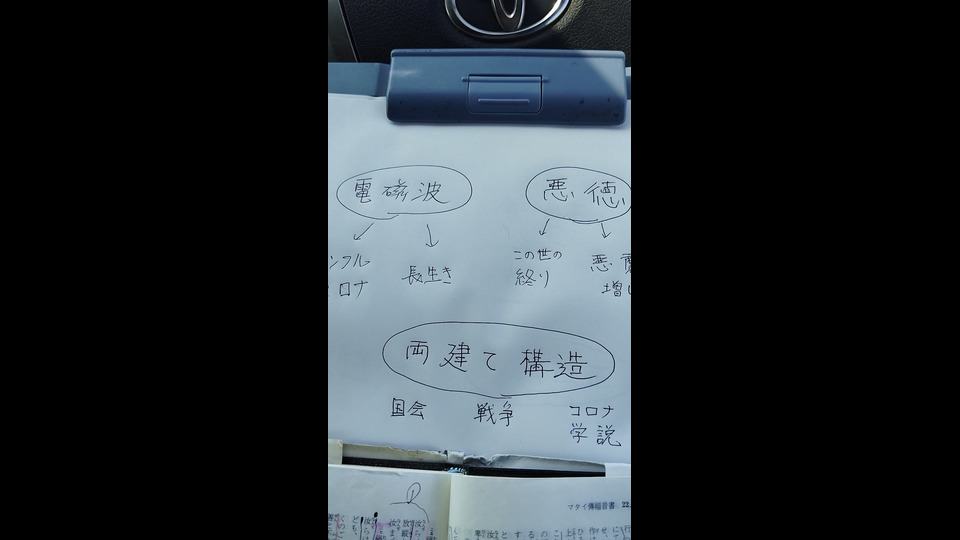 電磁波
悪徳
ンフル
ロナ
長生き
この世の
終り
悪
増し
両建て構造
国会
戦争
コロナ
学説
マタイ傳福音書 22